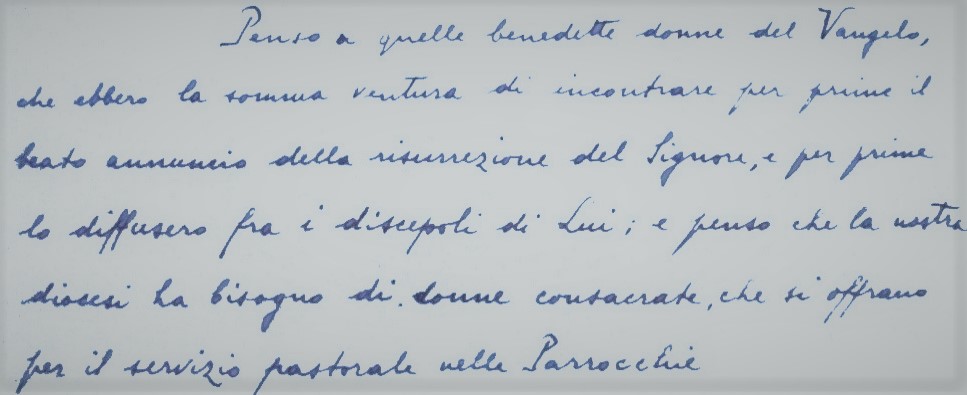 Penso a quelle benedette donne del Vangelo,
che ebbero la somma ventura di incontrare per prime il
beato annuncio della risurrezione del Signore, e per prime
lo diffusero fra i discepoli di Lui; e penso che la nostra
diocesi ha bisogno di donne consacrate, che si offrano
per il servizio pastorale nelle Parrocchie